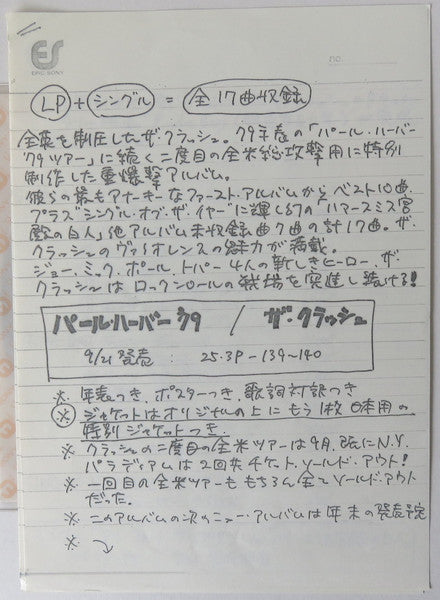 ES
EPIC SONY
no.
LP + シングル = 全17曲収録
全英を制圧したザ・クラッシュ。79年春の「パール・ハーバー
'79ツアー」に続く二度目の全米総攻撃用に特別
制作した重爆撃アルバム。
彼らの最もアナーキーなファースト・アルバムからベスト10曲
プラス"シングル・オブ・ザ・イヤー"に輝く67の「ハマースミス宮
殿の白人」他アルバム未収録曲7曲の計17曲。ザ・
クラッシュのヴァイオレンスの魅力が満載。
ジョー、ミック、ポール、トパー 4人の新しきヒーロー、ザ・
クラッシュはロックンロールの戦場を突進し続ける!
パール・ハーバー'79 / ザ・クラッシュ
9/21 発売 : 25・3P-139~140
※ 年表つき、ポスターつき、歌詞対訳つき
※ ジャケットはオリジナルの上にもう1枚日本用の
特別ジャケットつき.
※ クラッシュの二度目の全米ツアーは9月、既にN.Y.
パラディアムは2回共チケット、ソールド・アウト!
※ 一回目の全米ツアーももちろん全てソールド・アウト
だった.
※ このアルバムの次のニュー・アルバムは年末の発売予定
※